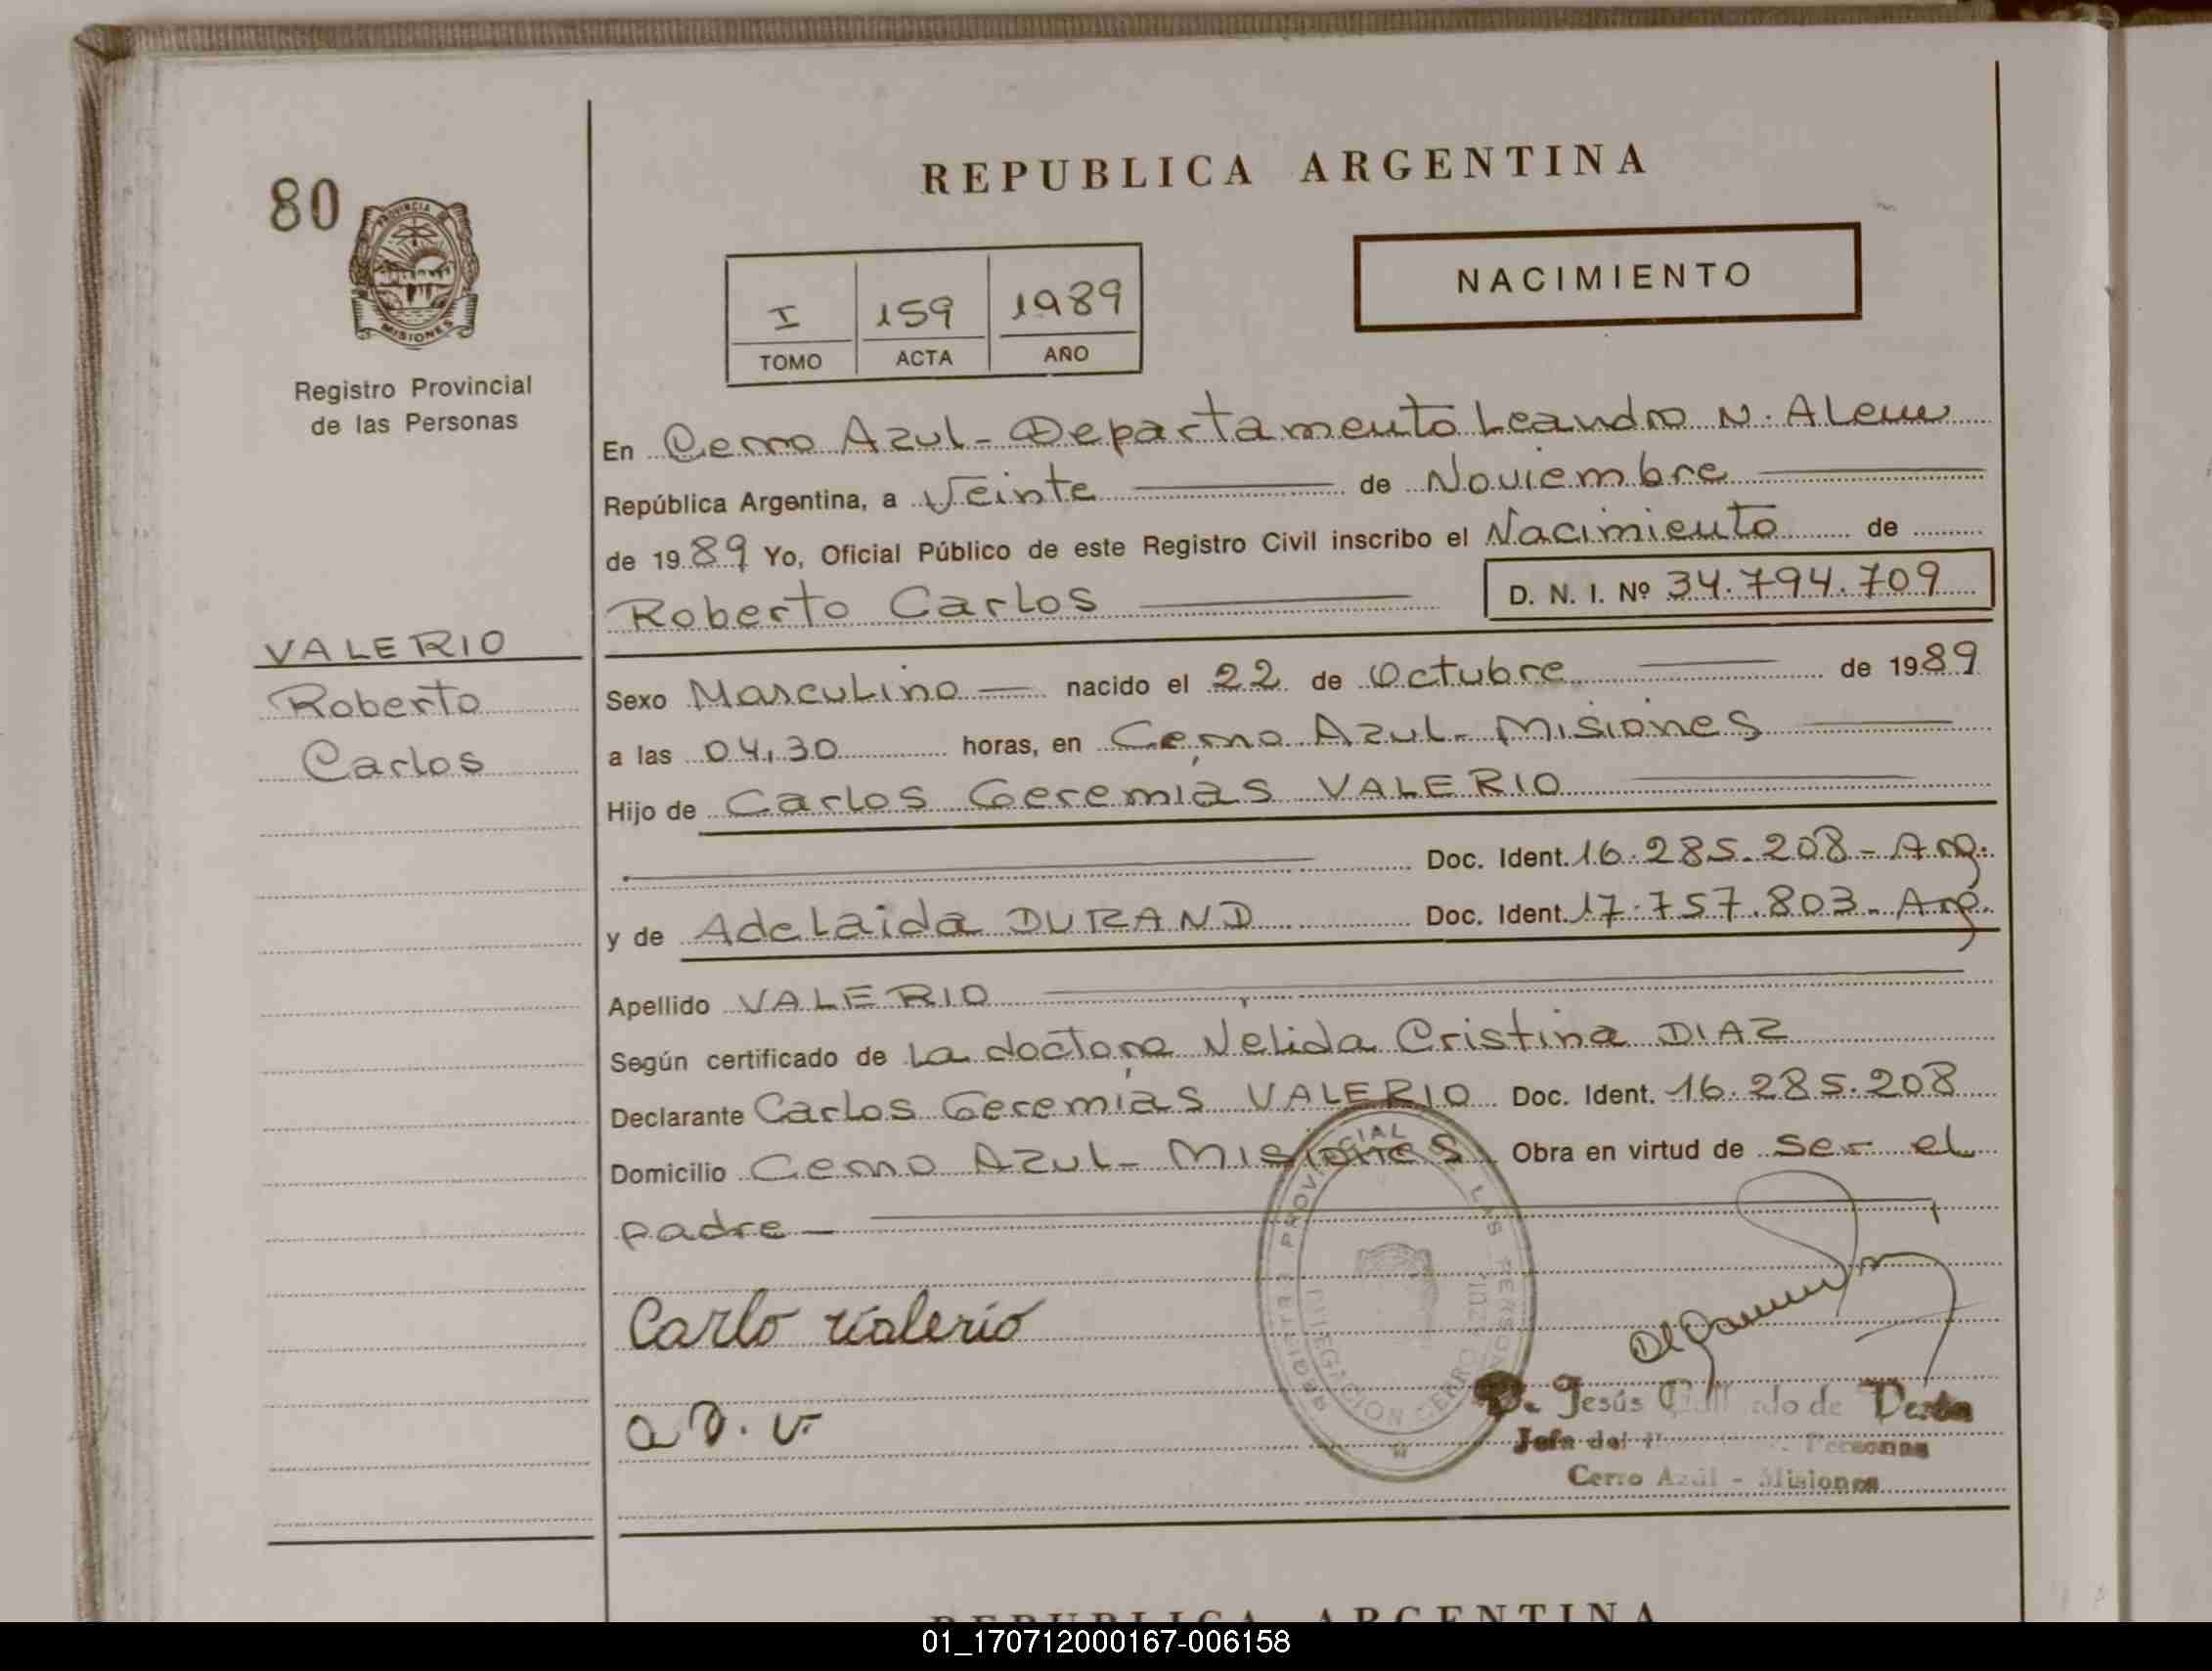 REPUBLICA ARGENTINA
80
PROVINCIA DE
MISIONES
Registro Provincial
de las Personas
NACIMIENTO
I 159 1989
TOMO ACTA AÑO
En Cerro Azul - Departamento Leandro N. Alem
República Argentina, a Veinte de Noviembre
de 1989 Yo, Oficial Público de este Registro Civil inscribo el Nacimiento de
Roberto Carlos D. N. I. Nº 34.794.709
VALERIO
Roberto
Carlos
Sexo Masculino nacido el 22 de Octubre de 1989
a las 04,30 horas, en Cerro Azul - Misiones
Hijo de Carlos Geremías VALERIO
Doc. Ident. 16.285.208 - Arg.
y de Adelaida DURAND Doc. Ident. 17.757.803 - Arg.
Apellido VALERIO
Según certificado de La doctora Nélida Cristina DIAZ
Declarante Carlos Geremías VALERIO Doc. Ident. 16.285.208
Domicilio Cerro Azul - Misiones Obra en virtud de ser el
padre
Carlo Valerio
a D. v
Jesús de
Jefa del Personas
Cerro Azul - Misiones
REPUBLICA ARGENTINA
01_170712000167-006158